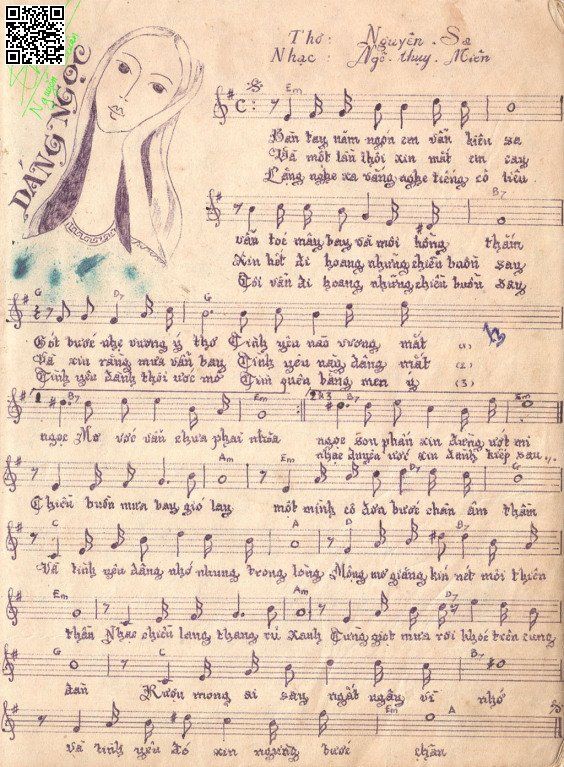 DÁNG NGỌC
Thơ: Nguyên. Sa
Nhạc: Ngô. thụy. Miên
Em
Bàn tay năm ngón em vẫn kiêu sa
Và một lần thôi xin mắt em cay
Lắng nghe xa vắng nghe tiếng cô liêu
B7
vẫn toé mây bay và môi hồng thắm
Xin hết đi hoang những chiều buồn say
Tôi vẫn đi hoang những chiều buồn say
G D7 G
Gót bước nhẹ vương ý thơ Tình yêu nào vương mắt (1)
Và xin rằng mưa vẫn bay Tình yêu này dâng mắt (2)
Tình yêu đành thôi ước mơ Tìm quên bằng men ý (3)
1. B7 Em 2&3 B7 Em
ngọc Mơ ước vẫn chưa phai nhòa ngọc son phấn xin đừng ướt mi
nhạc duyên ước xin dành kiếp sau
Am Em G
Chiều buồn mưa bay gió lay một mình cô đơn bước chân âm thầm
C A D B7
Và tình yêu dâng nhớ nhung trong lòng Mộng mơ giăng kín nét môi thiên
Em C Am D B7
thần Nhạc chiều lang thang rũ xanh Cung giọt mưa rơi khóc trên cung
G C B7
đàn Rượu mong ai say ngất ngây về nhớ
Em A
Và tình yêu đó xin ngừng bước chân